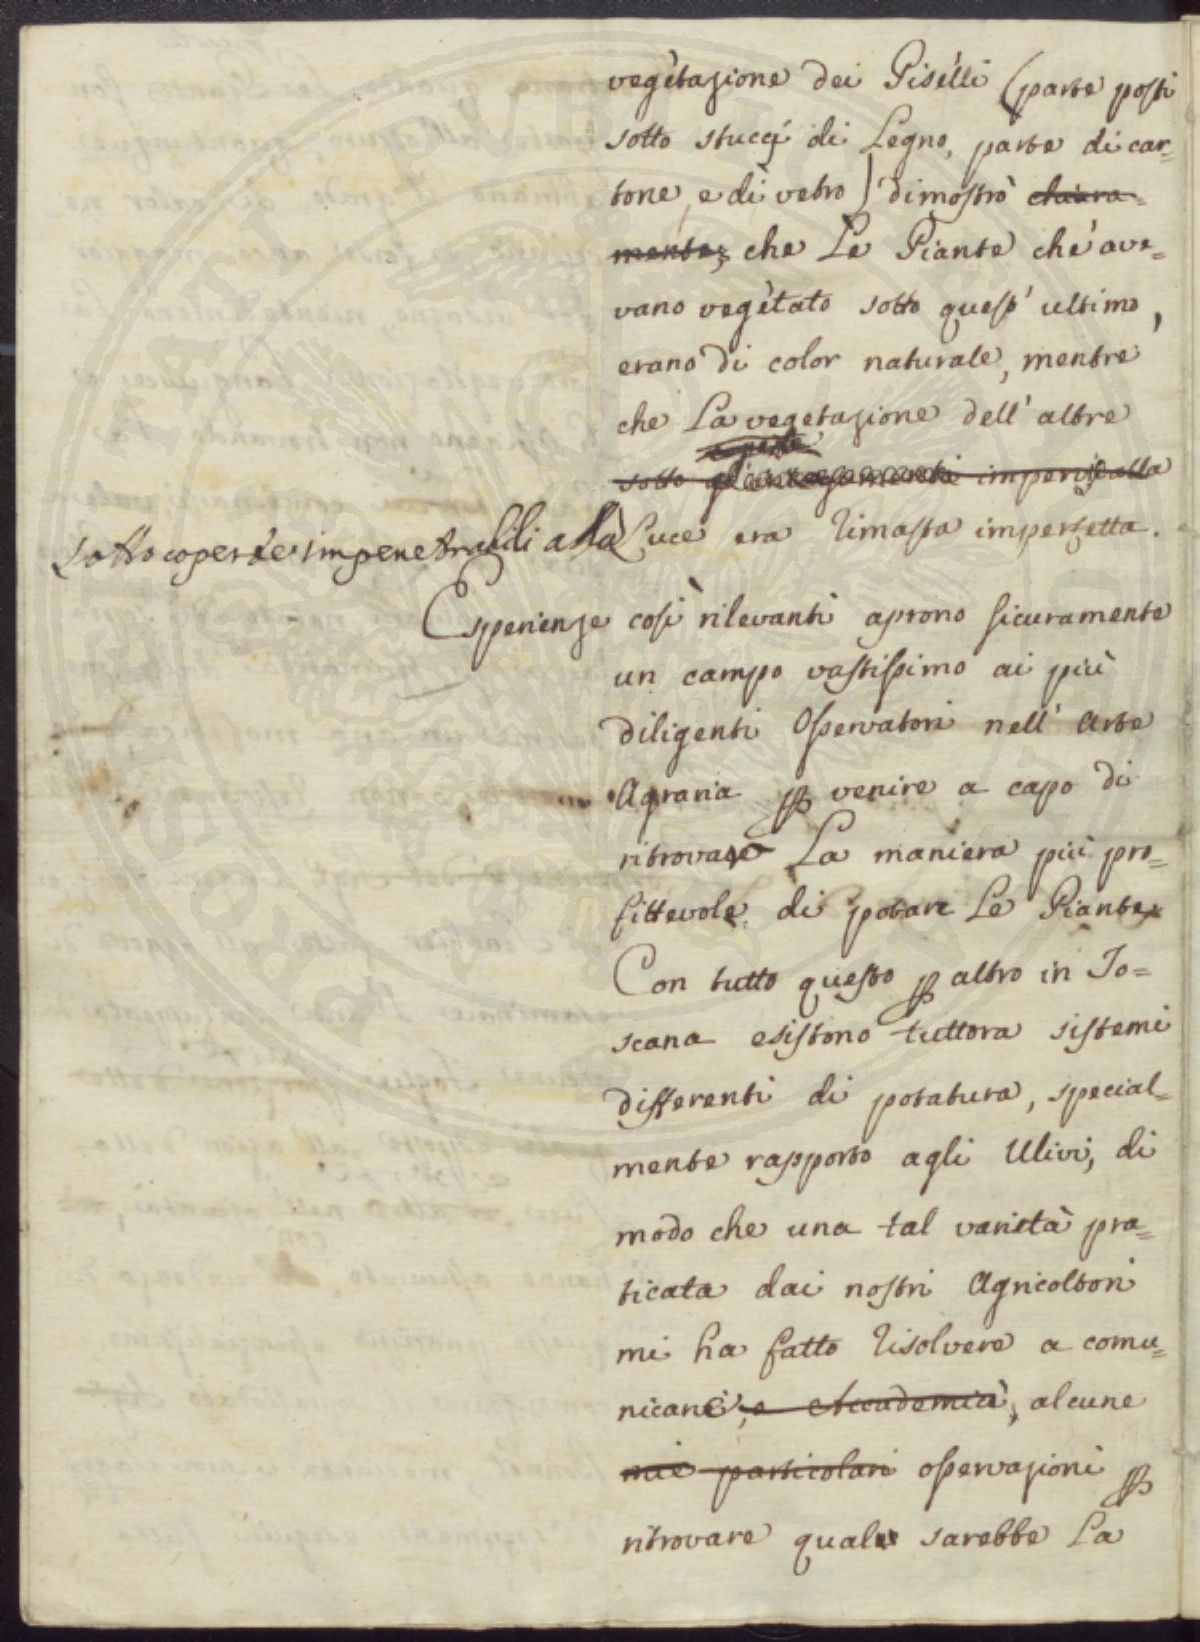 vegetazione dei Piselli (parte posti
sotto stucci di Legno, parte di car=
tone, e di vetro) dimostrò chiara=
mente, che Le Piante che ave=
vano vegetato sotto quest' ultimo,
erano di color naturale, mentre
che La vegetazione dell' altre
coperte
sotto impervie alla
sotto coperte impenetrabili alla Luce era rimasta imperfetta.
Esperienze così rilevanti aprono sicuramente
un campo vastissimo ai più
diligenti Osservatori nell' Arte
Agraria p venire a capo di
ritrovare La maniera più pro=
fittevole di potare Le Piante
Con tutto questo p altro in To=
scana esistono tuttora sistemi
differenti di potatura, special=
mente rapporto agli Ulivi, di
modo che una tal varietà pra=
ticata dai nostri Agricoltori
mi ha fatto risolvere a comu=
nicarci, o Accademici, alcune
mie particolari osservazioni p
ritrovare quale sarebbe La